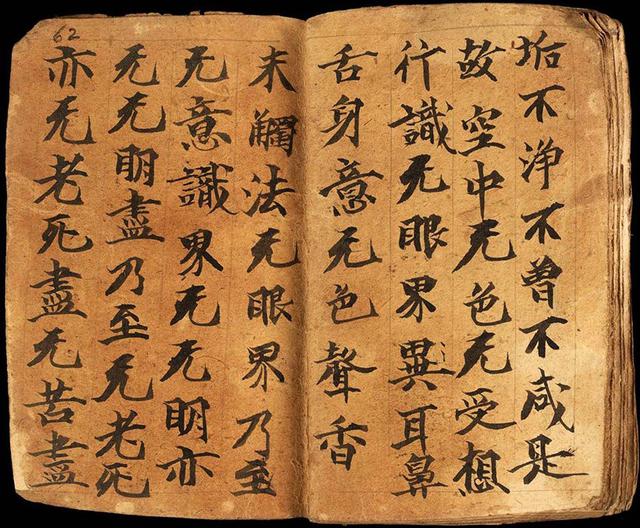 垢不淨不曾不咸是
故空中无色无受想
行識无眼界異耳鼻
舌身意无色聲香
未觸法无眼界乃至
无意識界无无明亦
无无明盡乃至无老死
亦无老死盡无苦盡
62